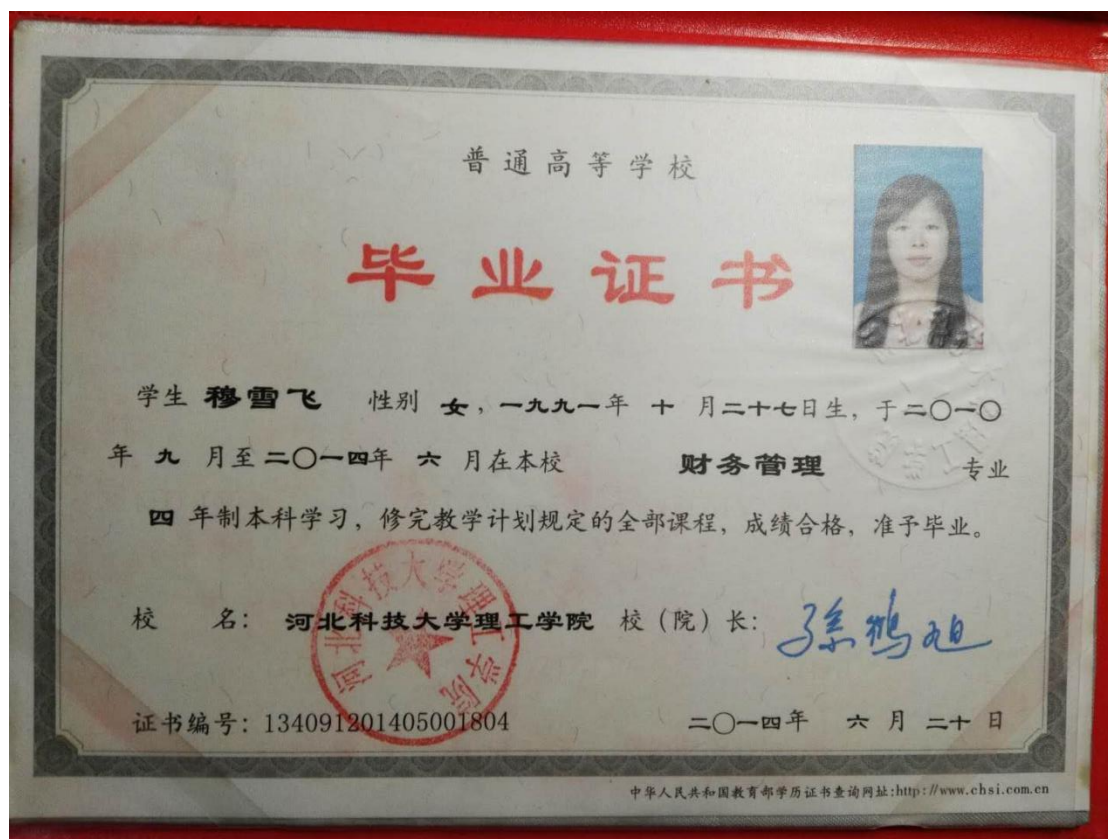 普通高等学校
毕业证书
学生 穆雪飞 性别 女，一九九一年 十 月二十七日生，于二〇一〇
年 九 月至二〇一四年 六 月在本校 财务管理 专业
四 年制本科学习，修完教学计划规定的全部课程，成绩合格，准予毕业。
校 名：河北科技大学理工学院 校（院）长：孙鹤旭
河北科技大学理工学院
证书编号：134091201405001804 二〇一四年 六 月 二十 日
中华人民共和国教育部学历证书查询网址:http://www.chsi.com.cn